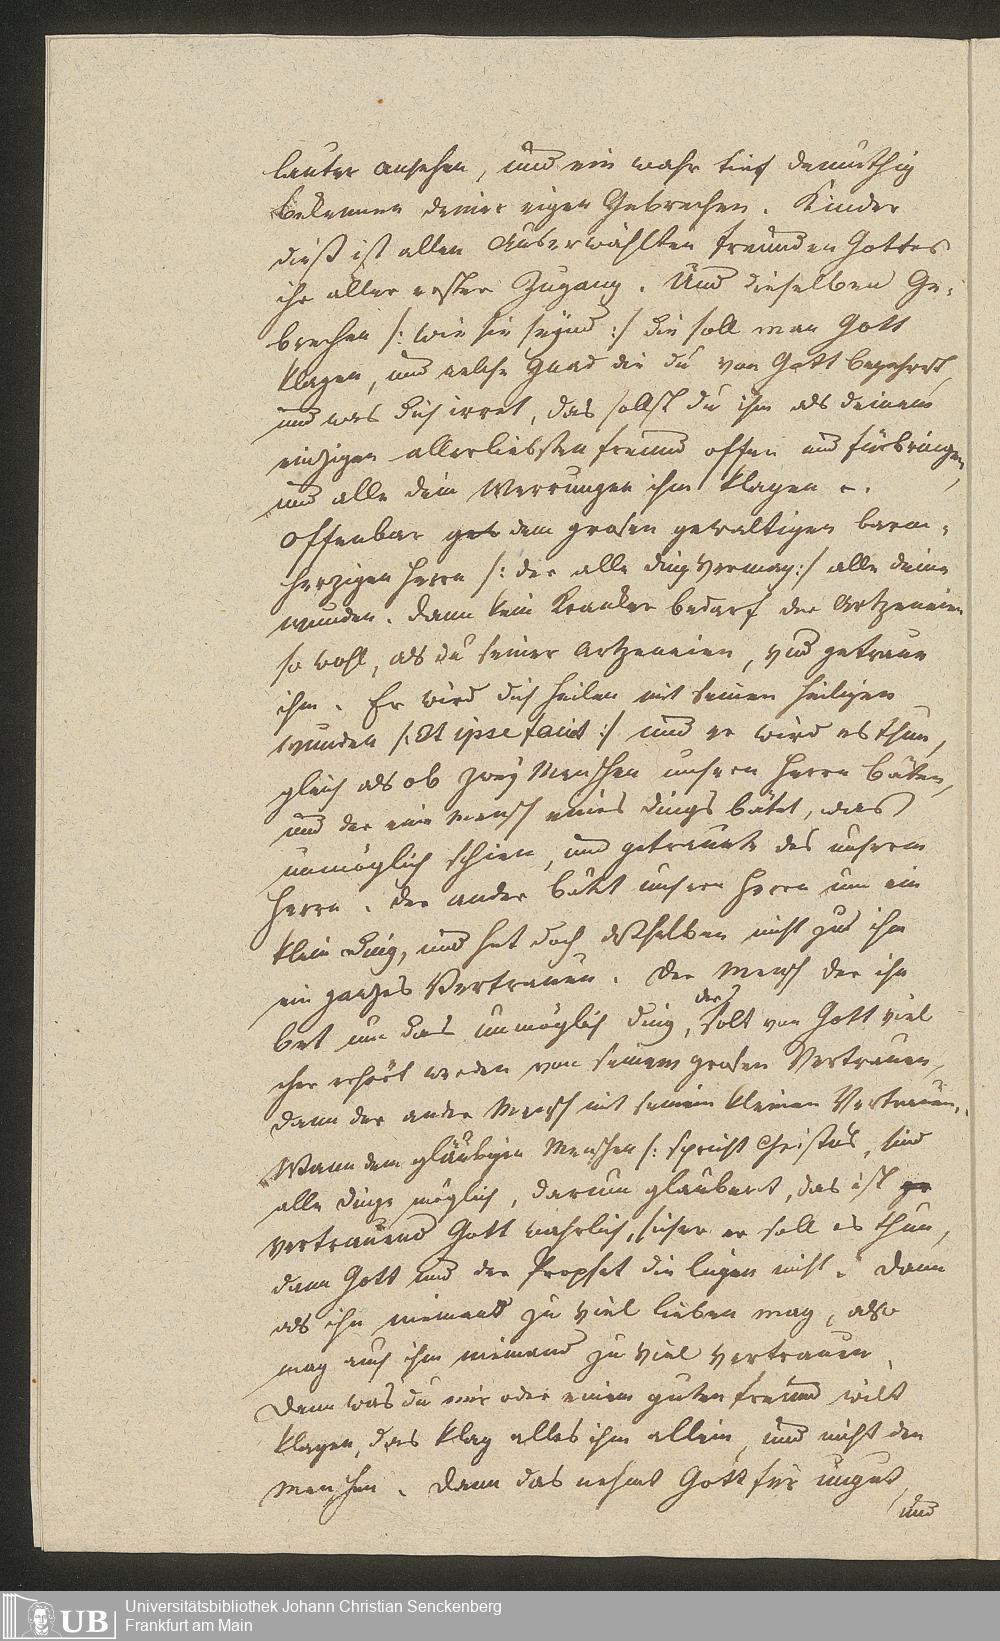 lauter ansehen, und ein wahr tief demuthig
bekennen deiner eigen Gebrechen. Kinder
dieß ist allen Auserwählten freunden Gottes
ihr aller erster Zugang. Und dieselben Ge-
brechen /: wie sie seynd :/ die soll man Gott
klagen, und welche Gnad die du von Gott begehrest,
und was dich irret, das sollst du ihm als deinem
einzigen allerliebsten freund offen und fürbringen,
und alle dein Werrungen ihm klagen
offenbar dem großen gewaltigen barm-
herzigen Herrn /: der alle ding vermag :/ alle deine
wunden. dann kein Kranker bedarf der Artzeneien
so wohl, als du seiner Artzeneien, und getraue
ihm. Er wird dich heilen mit seinen heiligen
wunden /: Et ipse faciet :/ und er wird es thun,
gleich als ob zwey Menschen unsern Herrn bäten,
und der eine Mensch eines dings bätet, das
unmöglich schien, und getraute des unserm
Herrn. der ander bätet unsern Herrn um ein
klein ding, und hat doch desselben nicht zu ihm
ein ganzes Vertrauen. der Mensch der ihn
bet um das unmöglich ding, der solt von Gott viel
eher erhört werden von seinem großen Vertrauen,
dann der ander Mensch mit seinem kleinen Vertrauen.
Wann dem gläubigen Menschen /: spricht Christus, sind
alle dinge möglich, darum glaubent, das ist
vertrauend Gott wahrlich, sicher er soll es thun,
dann Gott und der Prophet die lügen nicht. Dann
als ihn niemand zu viel lieben mag, also
mag auch ihm niemand zu viel vertrauen.
Dann was du mir oder einem guten freund wilt
klagen, das klag alles ihm allein, und nicht den
Menschen. Dann das nehmt Gott für ungut,
und
UB Universitätsbibliothek Johann Christian Senckenberg
Frankfurt am Main